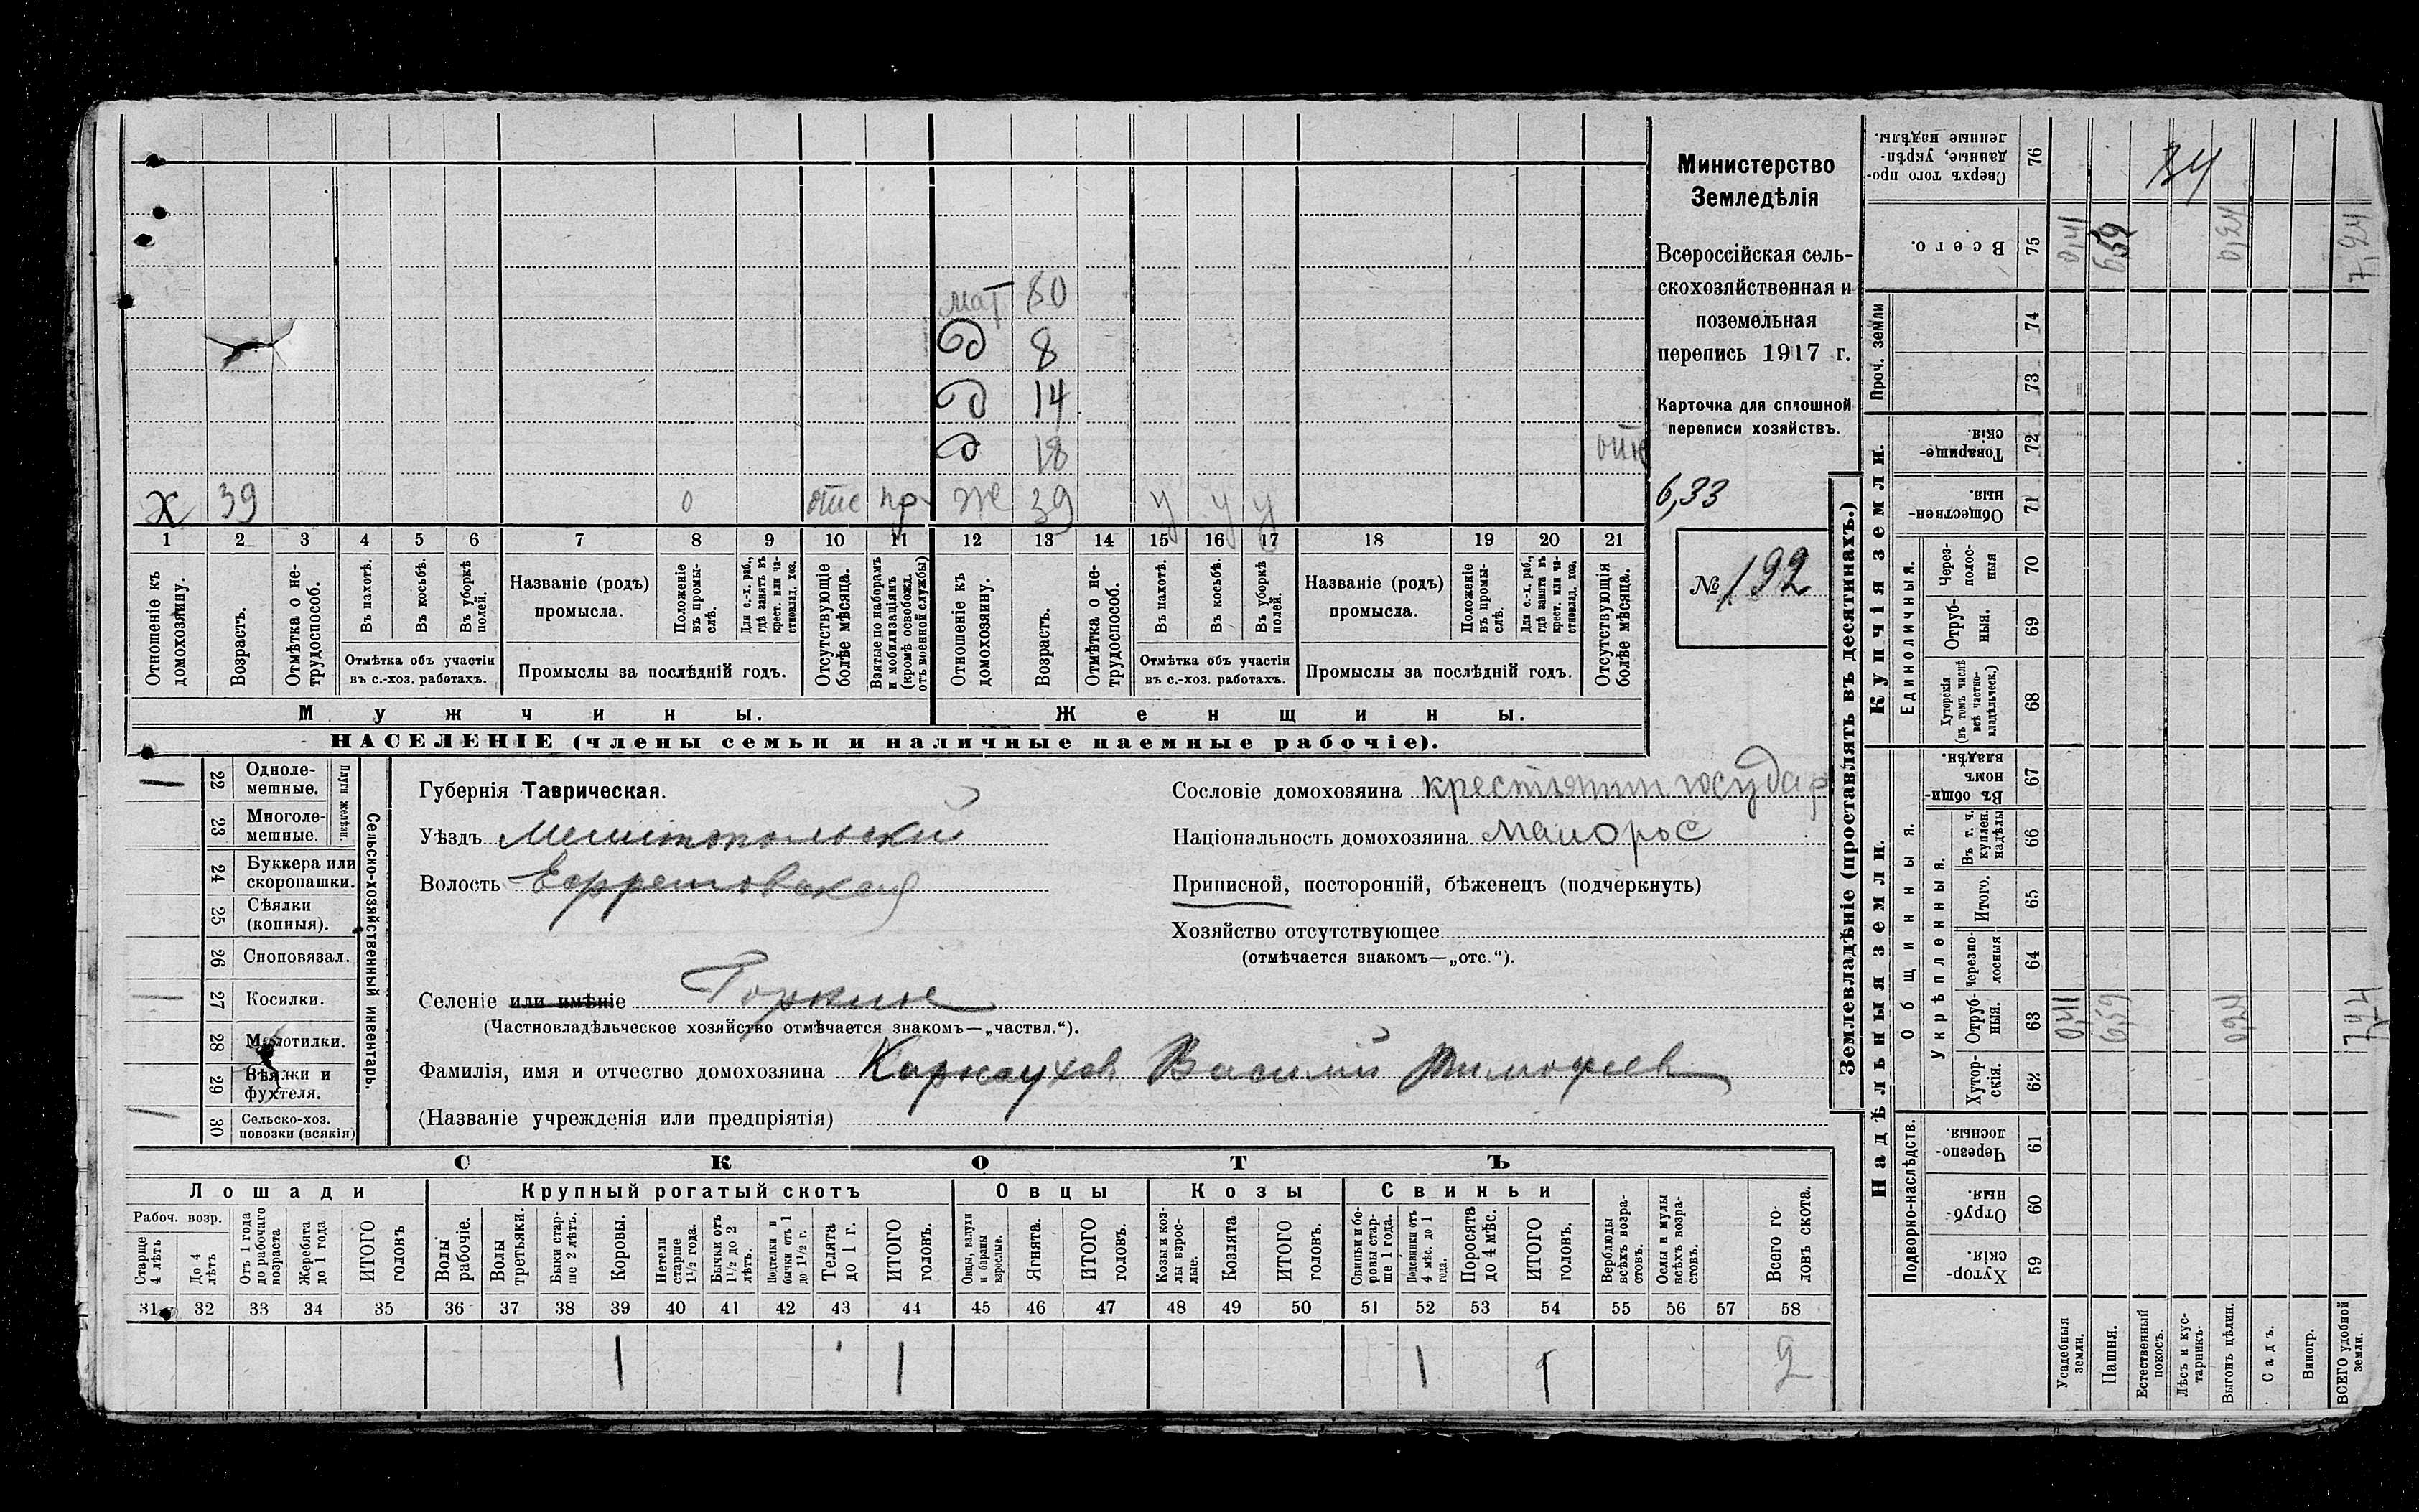 мат 80
д 8
д 14
д 18
х 39 0 отс пр ж 39 у у у
1 2 3 4 5 6 7 8 9 10 11 12 13 14 15 16 17 18 19 20 21
Отношеніе къ домохозяину.
Возрастъ.
Отмѣтка о не-трудоспособ.
Въ пахотѣ.
Въ косьбѣ.
Въ уборкѣ полей.
Отмѣтка объ участіи
въ с.-хоз. работахъ.
Названіе (родъ)
промысла.
Положеніе въ промы-слѣ.
Для с.-х. раб., гдѣ занятъ въ крест. или ча-стновлад. хоз.
Промыслы за послѣдній годъ.
Отсутствующіе болѣе мѣсяца.
Взятые по наборамъ и мобилизаціямъ (кромѣ освобожд. отъ военной службы)
Отношеніе къ домохозяину.
Возрастъ.
Отмѣтка о не-трудоспособ.
Въ пахотѣ.
Въ косьбѣ.
Въ уборкѣ полей.
Отмѣтка объ участіи
въ с.-хоз. работахъ.
Названіе (родъ)
промысла.
Положеніе въ промы-слѣ.
Для с.-х. раб., гдѣ занята въ крест. или ча-стновлад. хоз.
Промыслы за послѣдній годъ.
Отсутствующія болѣе мѣсяца.
Мужчины.
Женщины.
НАСЕЛЕНІЕ (члены семьи и наличные наемные рабочіе).
Министерство
Земледѣлія
Всероссійская сель-
скохозяйственная и
поземельная
перепись 1917 г.
Карточка для сплошной
переписи хозяйствъ.
6,33
№ 192
22 Одноле-мешные.
23 Многоле-мешные.
Плуги желѣзн.
24 Буккера или скоропашки.
25 Сѣялки (конныя).
26 Сноповязал.
27 Косилки.
28 Молотилки.
29 Вѣялки и фухтеля.
30 Сельско-хоз. повозки (всякія)
Сельско-хозяйственный инвентарь.
Губернія Таврическая.
Уѣздъ Мелитопольский
Волость Ефремовская
Селеніе или имѣніе Горкие
(Частновладѣльческое хозяйство отмѣчается знакомъ—„частвл.“).
Фамилія, имя и отчество домохозяина Карнаухов Василий Тимофеев
(Названіе учрежденія или предпріятія)
Сословіе домохозяина крестьянин государ
Національность домохозяина малорос
Приписной, посторонній, бѣженецъ (подчеркнуть)
Хозяйство отсутствующее
(отмѣчается знакомъ—„отс.“).
СКОТЪ
Лошади
Крупный рогатый скотъ
Овцы
Козы
Свиньи
Рабоч. возр.
Старше 4 лѣтъ
До 4 лѣтъ
Отъ 1 года до рабочаго возраста
Жеребята до 1 года
ИТОГО головъ
Волы рабочіе.
Волы третьяки.
Быки стар-ше 2 лѣтъ.
Коровы.
Нетели старше 1½ года.
Бычки отъ 1½ до 2 лѣтъ.
Подтелки и бычки отъ 1 до 1½ г.
Телята до 1 г.
ИТОГО головъ.
Овцы, валухи и бараны взрослые.
Ягнята.
ИТОГО головъ.
Козы и коз-лы взрос-лые.
Козлята
ИТОГО головъ.
Свиньи и бо-ровы стар-ше 1 года.
Подсвинки отъ 4 мѣс. до 1 года.
Поросята до 4 мѣс.
ИТОГО головъ.
Верблюды всѣхъ возра-стовъ.
Ослы и мулы всѣхъ возра-стовъ.
Всего го-ловъ скота.
31 32 33 34 35 36 37 38 39 40 41 42 43 44 45 46 47 48 49 50 51 52 53 54 55 56 57 58
1 1 1 1 2
Землевладѣніе (проставлять въ десятинахъ.)
Надѣльныя земли.
Купчія земли.
Проч. земли
Подворно-наслѣдств.
Общинныя.
Укрѣпленныя.
Единоличныя.
59 Хутор-скія.
60 Отруб-ныя.
61 Черезпо-лосныя.
62 Хутор-скія.
63 Отруб-ныя. 0,41 6,59 0,24 7,24
64 Черезпо-лосныя
65 Итого.
66 Въ т. ч. куплен. надѣлы
67 Въ общи-номъ владѣн.
68 Хуторскія (въ томъ числѣ всѣ частно-владѣльческ.)
69 Отруб-ныя.
70 Через-полос-ныя
71 Обществен-ныя.
72 Товарище-скія.
73
74
75 Всего. 0,41 6,59 0,24 7,24
76 Сверхъ того про-данные, укрѣп-ленные надѣлы.
Усадебныя земли.
Пашня.
Естественный покосъ.
Лѣсъ и кус-тарникъ.
Выгонъ цѣлин.
Садъ.
Виногр.
ВСЕГО удобной земли.